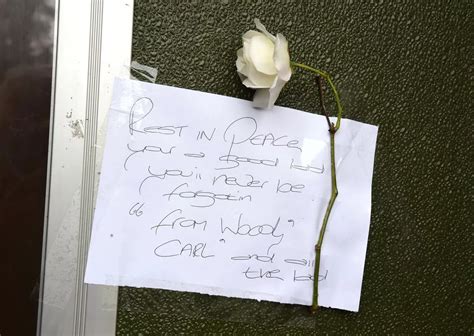 REST IN PEACE
your a good lad
you'll never be
forgotin
"from Woody"
CARL" and all
the lad